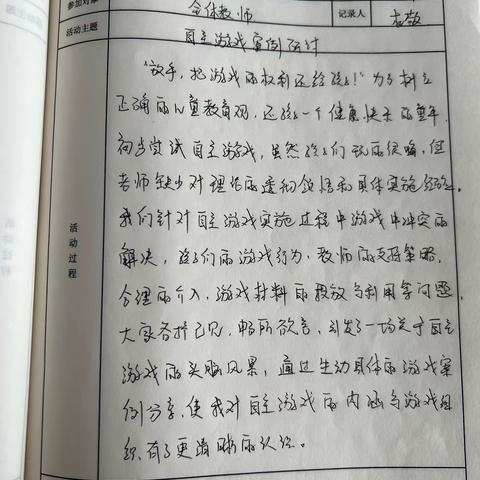 参加对象 全体教师 记录人
活动主题 自主游戏案例研讨
活动过程
“放手，把游戏的权利还给孩子！”为了树立
正确的儿童教育观，还孩子一个健康、快乐的童年，
初步尝试自主游戏，虽然孩子们玩的很嗨，但
老师缺少对理论的透彻领悟和具体实施经验，
我们针对自主游戏实施过程中游戏中冲突的
解决，孩子们的游戏行为，教师的支持策略，
合理的介入，游戏材料的投放与利用等问题，
大家各抒己见，畅所欲言，引发了一场关于自主
游戏的头脑风暴，通过生动具体的游戏案
例分享，使我对自主游戏的内涵与游戏组
织，有了更清晰的认识。